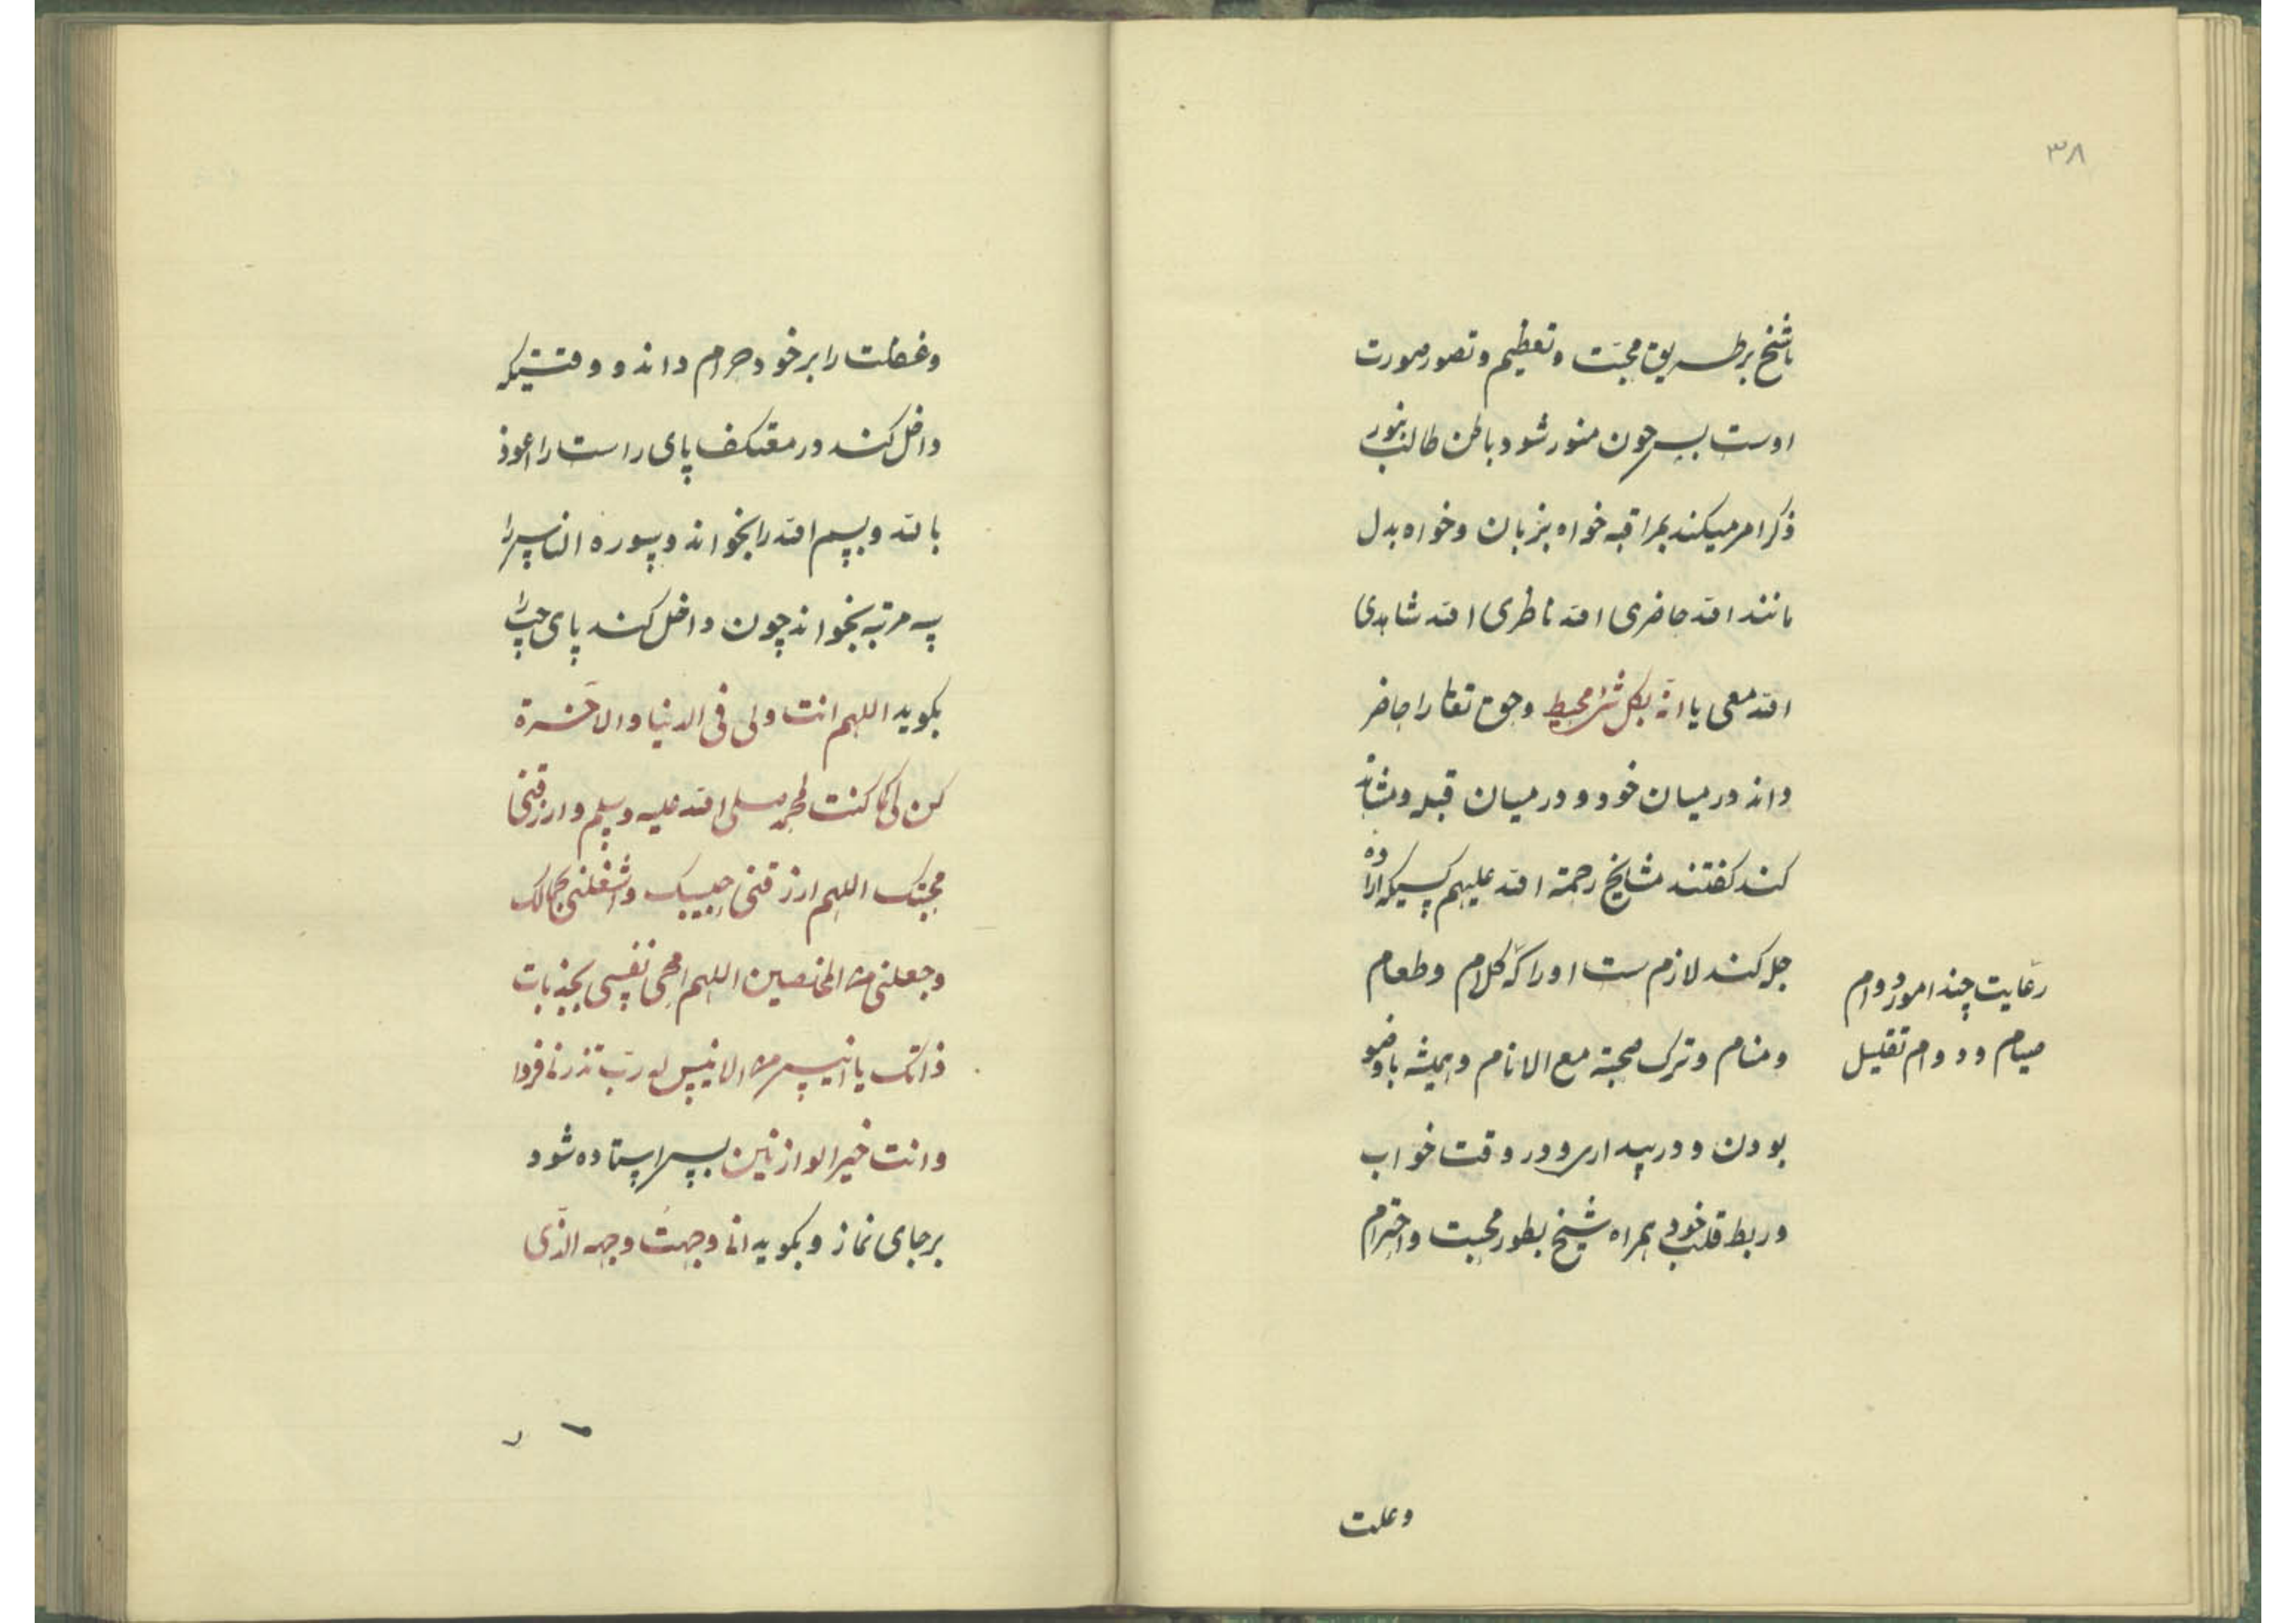 ۳۸
باشیخ بر طریق محبّت و تعظیم و تصور صورت
اوست پس چون منور شود باطن طالب بنور
ذکر امر میکند بمراقبه خواه بزبان و خواه بدل
مانند الله حاضری الله ناظری الله شاهدی
الله معی یا انّه بکل شئ محیط و حق تعا را حاضر
داند درمیان خود و درمیان قبله و مشاهده
کند کفتند مشایخ رحمة الله علیهم کسیکه اراده
چله کند لازم ست او را که کلام و طعام
رعایت چند امور دوام
صیام و دوام تقلیل
و منام و ترک صحبة مع الانام و همیشه باوضو
بودن و در بیداری و در وقت خواب
و ربط قلب خود همراه شیخ بطور محبت و احترام
وغفلت
وغفلت را بر خود حرام داند و وقتیکه
داخل کند در معتکف پای راست را اعوذ
بالله و بسم الله را بخواند و سوره الناس را
سه مرتبه بخواند چون داخل کند پای چپ را
بکوید اللهم انت ولی فی الدنیا والاخرة
کن لی کما کنت لمحمد صلی الله علیه وسلم وارزقنی
محبتک اللهم ارزقنی حبیبک واشغلنی بجمالک
وجعلنی من المخلصین اللهم امحی نفسی بجذبات
ذاتک یا انیس من لا انیس له ربّ لا تذرنی فردا
وانت خیر الوارثین پس ایستاده شود
بر جای نماز و بکوید انی وجهتُ وجهی الذّی